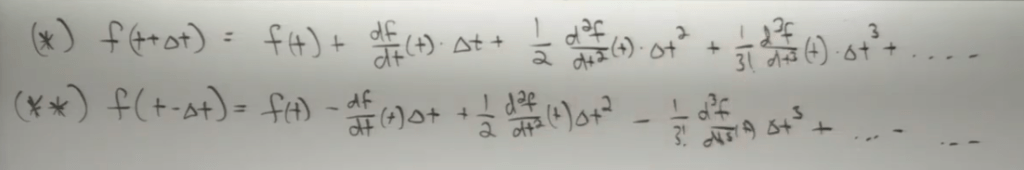 (*) f(t+Δt) = f(t) + df/dt(t)·Δt + 1/2 d²f/dt²(t)·Δt² + 1/3! d³f/dt³(t)·Δt³ + ....
(**) f(t-Δt) = f(t) - df/dt(t)Δt + 1/2 d²f/dt²(t)Δt² - 1/3! d³f/dt³(t) Δt³ + ... ...